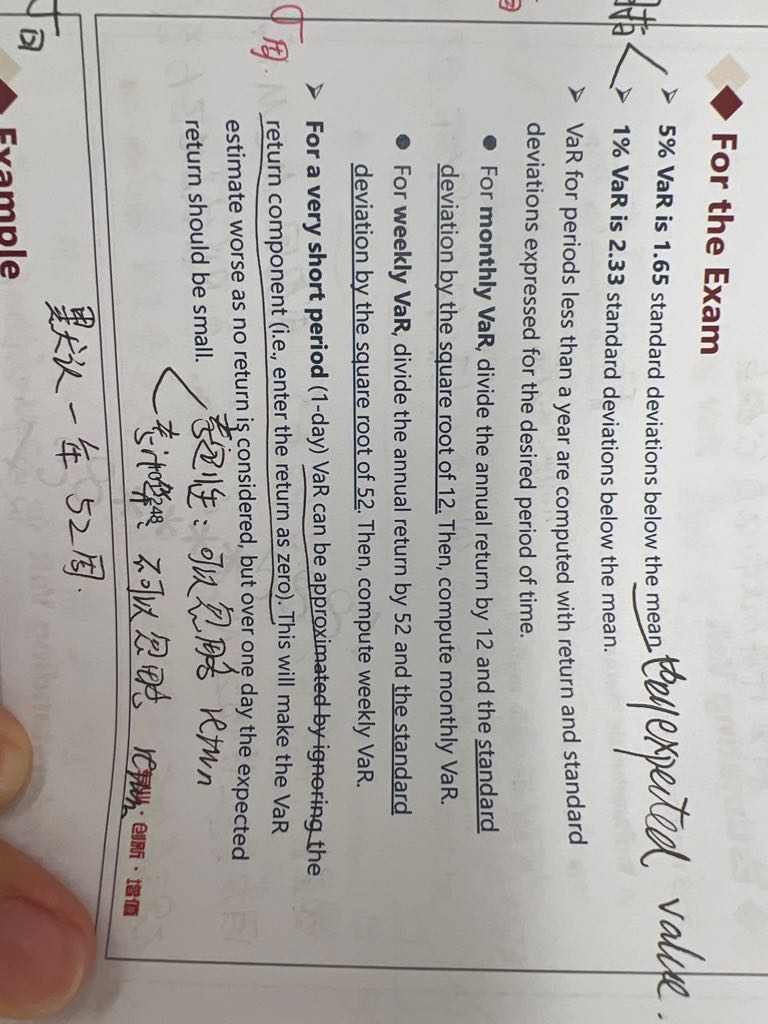 For the Exam
➢ 5% VaR is 1.65 standard deviations below the mean expected value.
➢ 1% VaR is 2.33 standard deviations below the mean.
➢ VaR for periods less than a year are computed with return and standard
deviations expressed for the desired period of time.
● For monthly VaR, divide the annual return by 12 and the standard
deviation by the square root of 12. Then, compute monthly VaR.
● For weekly VaR, divide the annual return by 52 and the standard
deviation by the square root of 52. Then, compute weekly VaR.
周.
➢ For a very short period (1-day) VaR can be approximated by ignoring the
return component (i.e., enter the return as zero). This will make the VaR
estimate worse as no return is considered, but over one day the expected
return should be small.
考定性: 可以忽略 return
考计算: 不可以忽略 return
48
·创新·增值
默认一年 52周.
Example